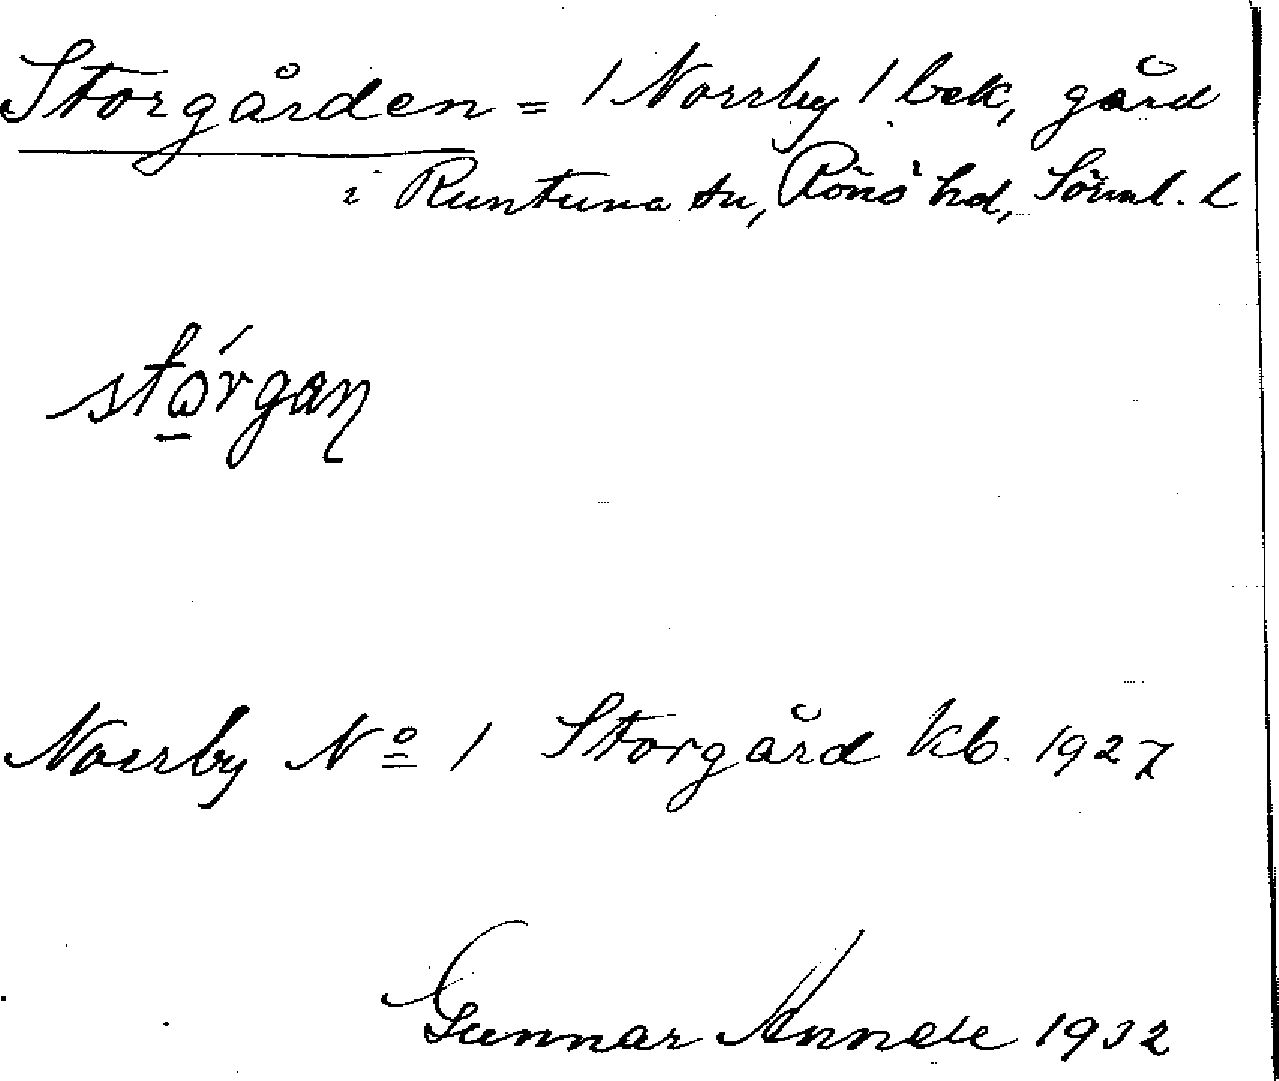 Storgården = 1 Norrby 1 bek, gård
i Runtuna sn, Rönö hd, Sörml. l
sto̱´rgaɳ
Norrby Nº 1 Storgård kb. 1927
Gunnar Annell 1932